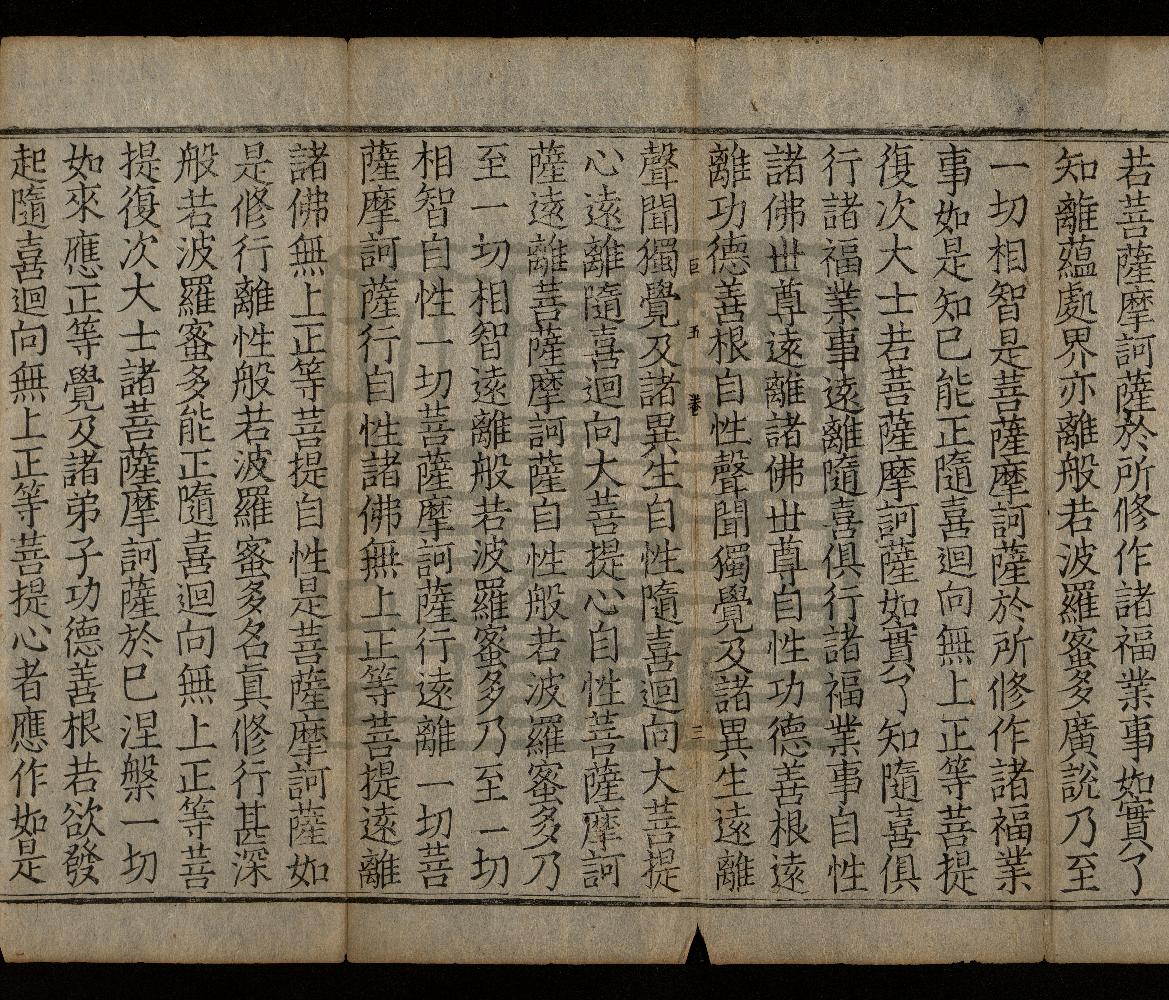 若菩薩摩訶薩於所修作諸福業事如實了
知離蘊處界亦離般若波羅蜜多廣說乃至
一切相智是菩薩摩訶薩於所修作諸福業
事如是知已能正隨喜迴向無上正等菩提
復次大士若菩薩摩訶薩如實了知隨喜俱
行諸福業事遠離隨喜俱行諸福業事自性
諸佛世尊遠離諸佛世尊自性功德善根遠
離功德善根自性聲聞獨覺及諸異生遠離
巨 五 卷 三
聲聞獨覺及諸異生自性隨喜迴向大菩提
心遠離隨喜迴向大菩提心自性菩薩摩訶
薩遠離菩薩摩訶薩自性般若波羅蜜多乃
至一切相智遠離般若波羅蜜多乃至一切
相智自性一切菩薩摩訶薩行遠離一切菩
薩摩訶薩行自性諸佛無上正等菩提遠離
諸佛無上正等菩提自性是菩薩摩訶薩如
是修行離性般若波羅蜜多名真修行甚深
般若波羅蜜多能正隨喜迴向無上正等菩
提復次大士諸菩薩摩訶薩於已涅槃一切
如來應正等覺及諸弟子功德善根若欲發
起隨喜迴向無上正等菩提心者應作如是